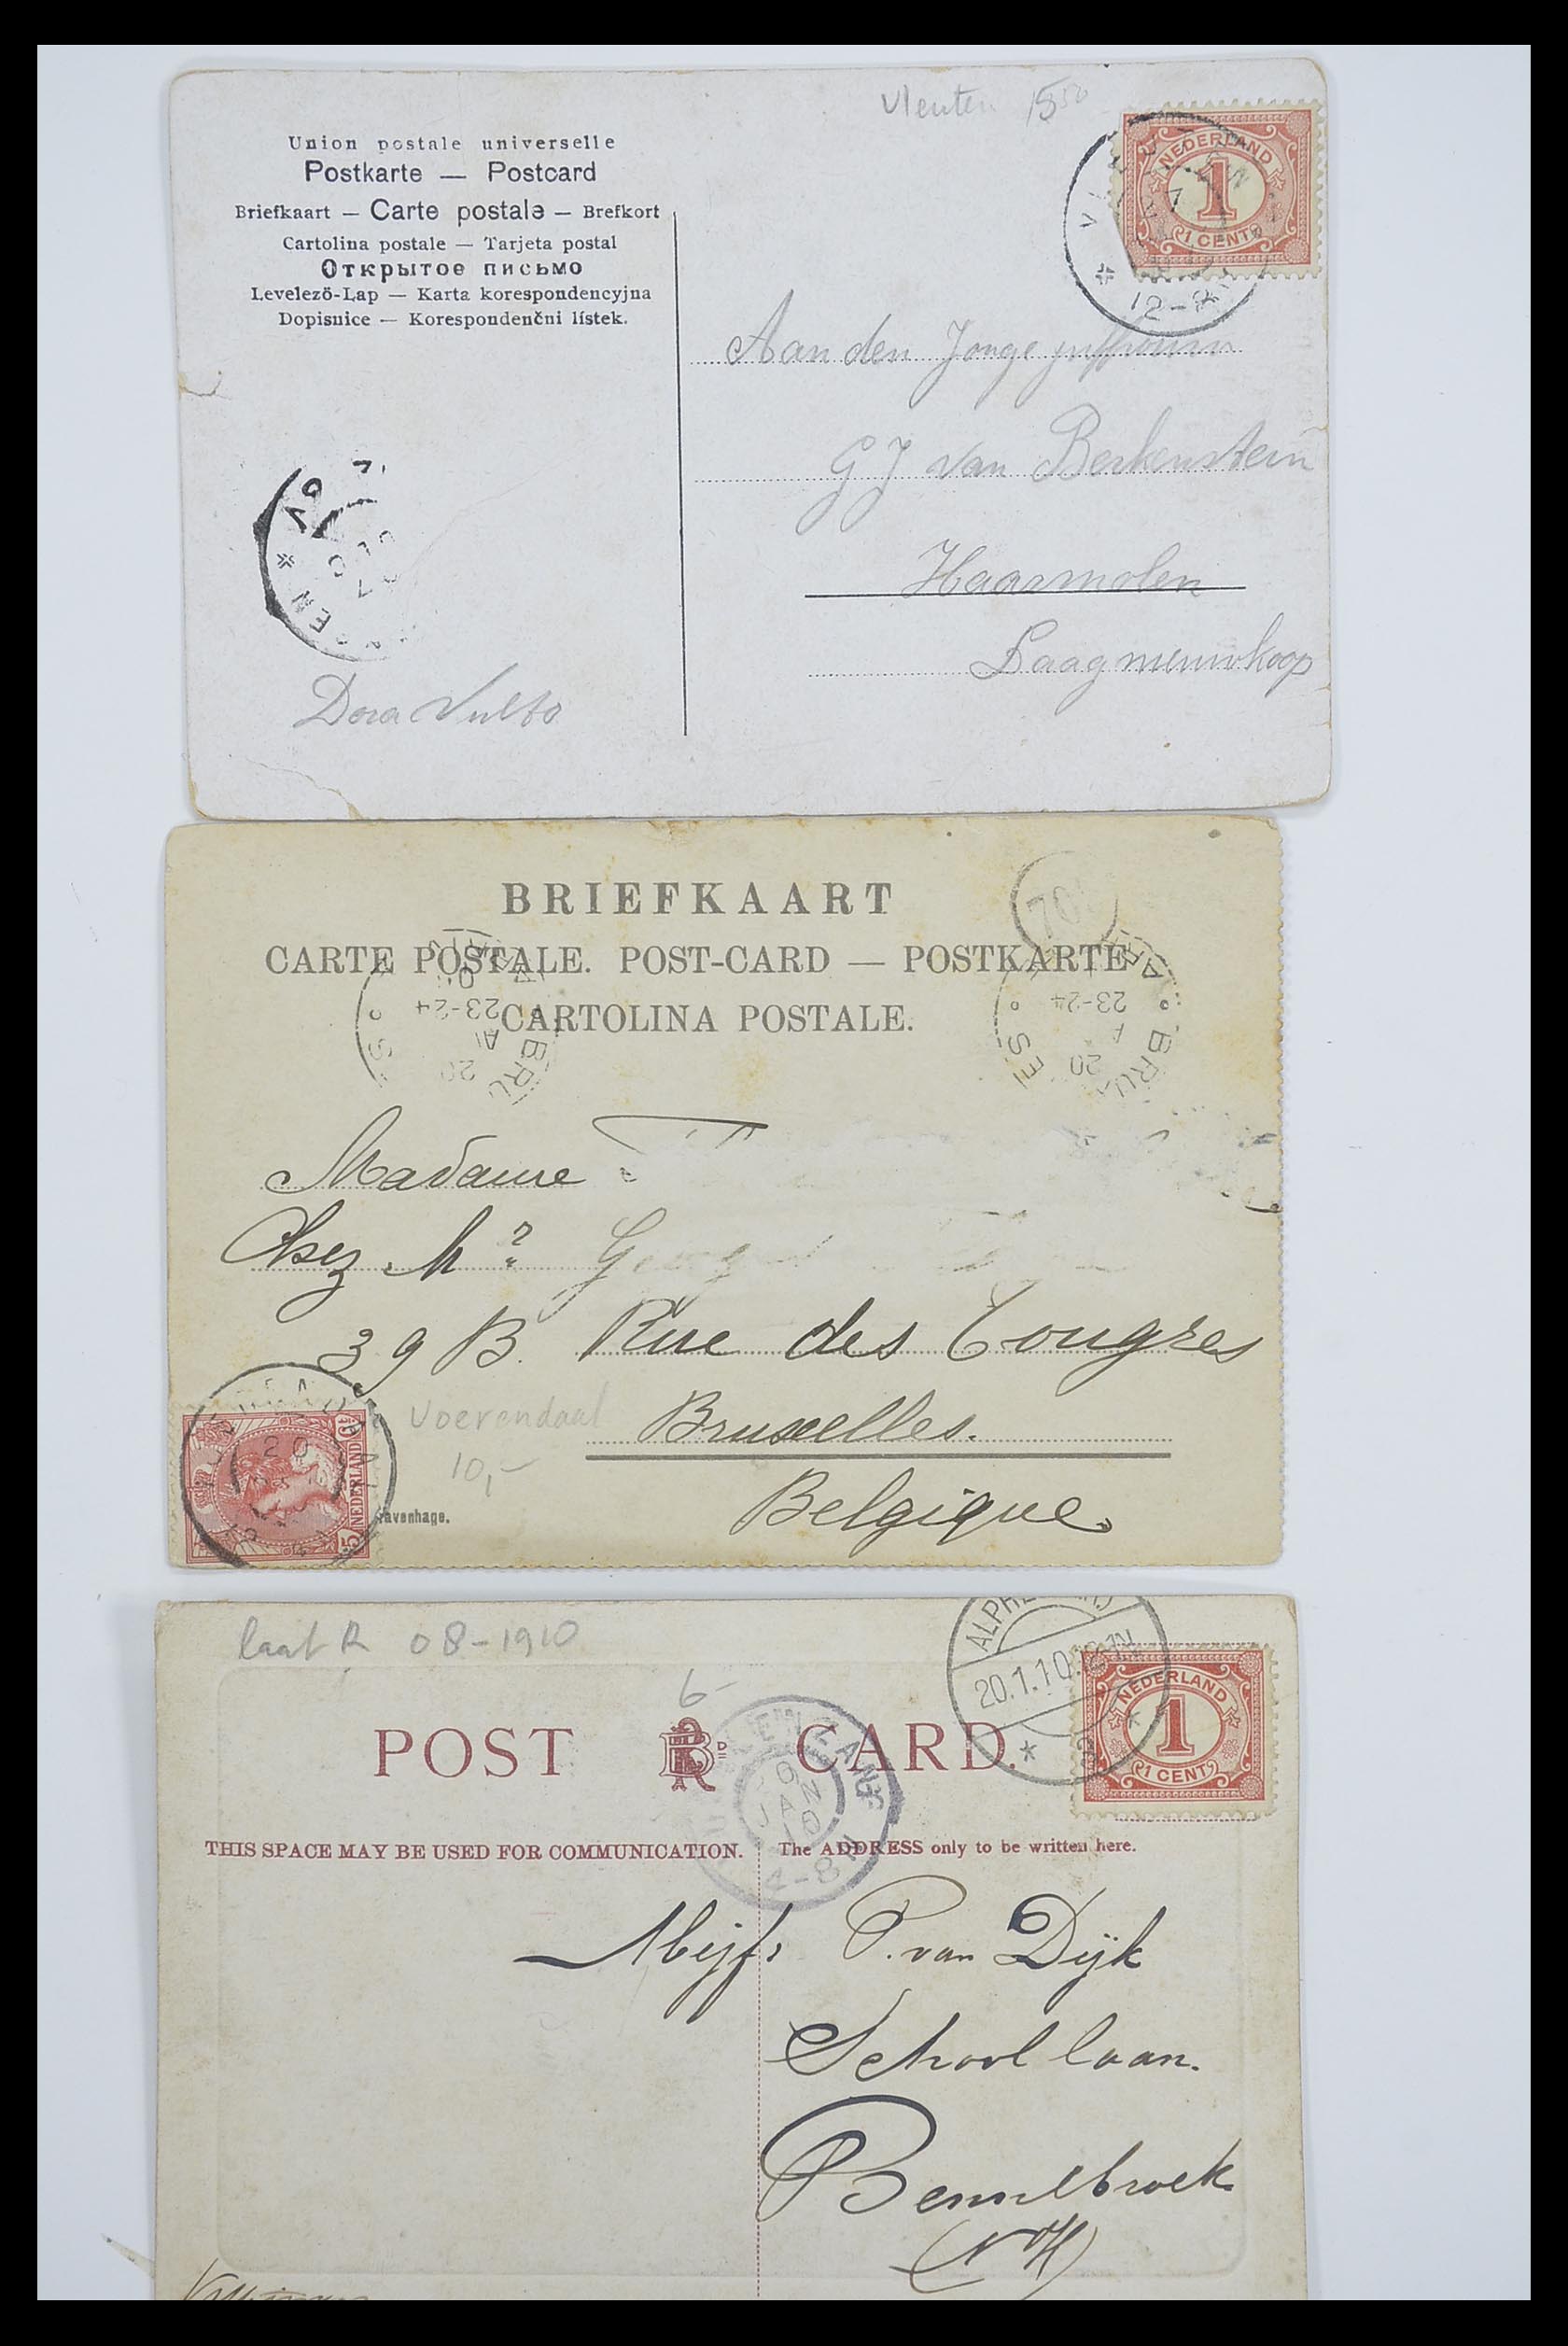 Vleuten 15⁵⁰
Union postale universelle
Postkarte — Postcard
Briefkaart — Carte postale — Brefkort
Cartolina postale — Tarjeta postal
Открытое письмо
Levelező-Lap — Karta korespondencyjna
Dopisnice — Korespondenčni lístek.
NEDERLAND
1
1 CENT
12-
Aan den Jonge juffrouw
G J van Berkenstein
Haarmolen
Laagnieuwkoop
Dora Vulto
BRIEFKAART
CARTE POSTALE. POST-CARD — POSTKARTE
CARTOLINA POSTALE.
23-24
23-24
20
20
Madame
Chez Mr
39 B. Rue des Congres
Voerendaal
Bruxelles.
10,-
Belgique
NEDERLAND
5
avenhage.
laat R 08-1910
6-
20.1.10
NEDERLAND
1
1 CENT
POST CARD.
JAN
THIS SPACE MAY BE USED FOR COMMUNICATION.
The ADDRESS only to be written here.
Mejfr P. van Dijk
School laan.
Bennebroek
(NH)